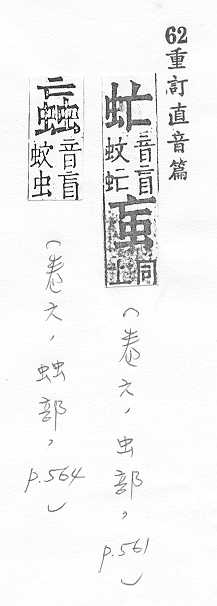 62重訂直音篇
虻音盲蚊虻䖟同上
(卷六,虫部,p.561)
蝱音盲蚊虫
(卷六,䖵部,p.564)